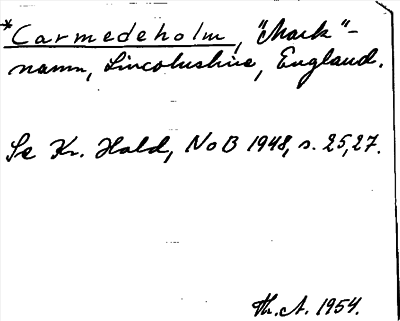 *Carmedeholm, "Mark"-
namn, Lincolnshire, England.
Se Kr. Hald, NoB 1948, s. 25, 27.
Th. A. 1954.